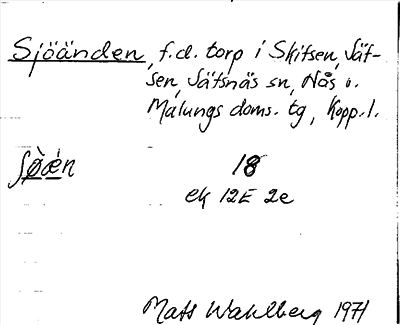 Sjöänden, f.d. torp i Skitsen, Säf-
sen, Säfsnäs sn, Nås o.
Malungs doms. tg, Kopp. l.
ʃø̀æ̀n 18
ek 12E 2e
Mats Wahlberg 1971